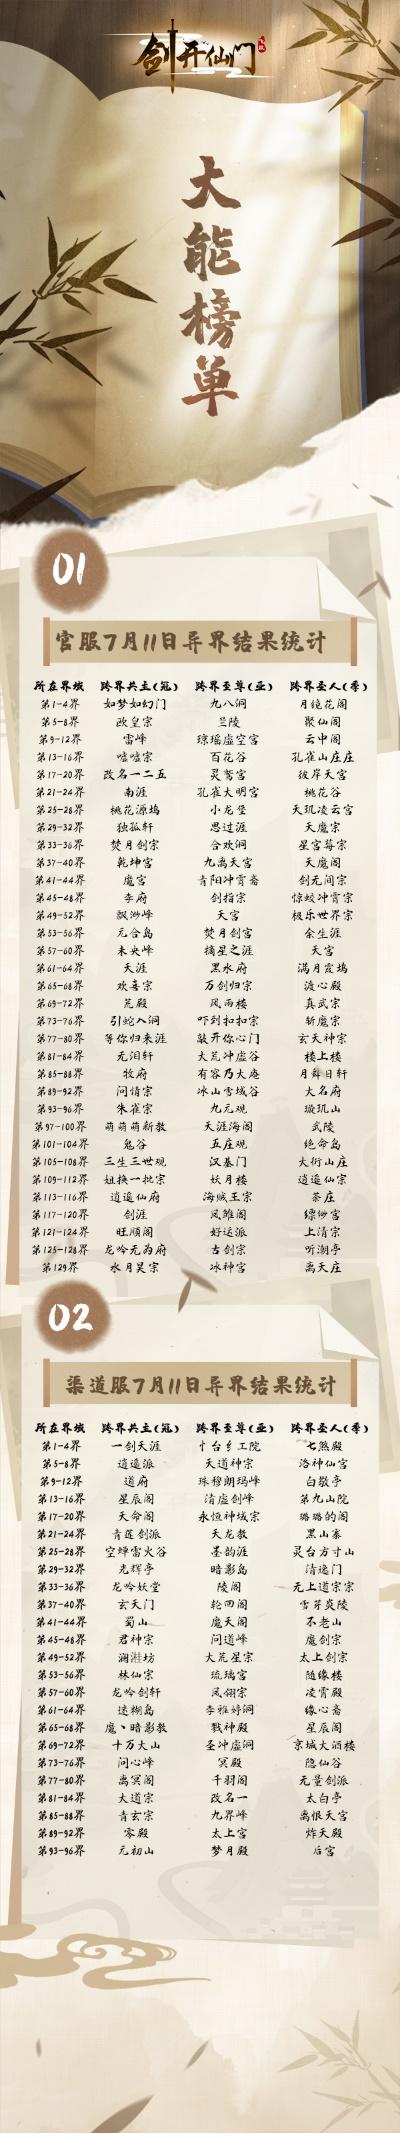 剑开仙门
大能榜单
01
官服7月11日异界结果统计
所在界域 跨界共主(冠) 跨界至尊(亚) 跨界圣人(季)
第1-4界 如梦如幻门 九八洞 月镜花阁
第5-8界 欧皇宗 兰陵 聚仙阁
第9-12界 雷峰 琼瑶虚空宫 云中阁
第13-16界 嘘嘘宗 百花谷 孔雀山庄庄
第17-20界 改名一二五 灵鹫宫 彼岸天宫
第21-24界 南涯 孔雀大明宫 桃花谷
第25-28界 桃花源坞 小龙堡 天玑凌云宫
第29-32界 独孤轩 思过涯 天魔宗
第33-36界 焚月剑宗 合欢洞 星宫莓宗
第37-40界 乾坤宫 九离天宫 天魔阁
第41-44界 魔宫 青阳冲霄斋 剑无间宗
第45-48界 李府 剑指宗 惊蛟冲霄宗
第49-52界 飘渺峰 天宫 极乐世界宗
第53-56界 元合岛 焚月剑宫 余生涯
第57-60界 未央峰 摘星之涯 天宫
第61-64界 天涯 黑水府 满月霞坞
第65-68界 欢喜宗 万剑归宗 渡心殿
第69-72界 荒殿 风雨楼 真武宗
第73-76界 引蛇入洞 吓到扣扣宗 斩魔宗
第77-80界 等你归来涯 敲开你心门 玄天神宗
第81-84界 无泪轩 大荒冲虚谷 楼上楼
第85-88界 牧府 有容乃大庵 月舜日轩
第89-92界 问情宗 冰山雪域谷 大名府
第93-96界 朱雀宗 九元观 璇玑山
第97-100界 萌萌萌新教 天涯海阁 武陵
第101-104界 鬼谷 五庄观 绝命岛
第105-108界 三生三世观 汉基门 大衍山庄
第109-112界 妞换一批宗 妖月楼 逍遥仙宗
第113-116界 逍遥仙府 海贼王宗 茶庄
第117-120界 剑涯 凤雏阁 缥缈宫
第121-124界 旺顺阁 好运派 上清宗
第125-128界 龙吟无为府 古剑宗 听潮亭
第129界 水月昊宗 冰神宫 离天庄
02
渠道服7月11日异界结果统计
所在界域 跨界共主(冠) 跨界至尊(亚) 跨界圣人(季)
第1-4界 一剑天涯 工院 七煞殿
第5-8界 逍遥派 天道神宗 洛神仙宫
第9-12界 道府 珠穆朗玛峰 白散亭
第13-16界 星辰阁 清虚剑峰 第九山院
第17-20界 天命阁 永恒神域宗 璐璐的阁
第21-24界 青莲剑派 天龙教 黑山寨
第25-28界 空蝉雷火谷 墨韵涯 灵台方寸山
第29-32界 光辉亭 暗影岛 清逸门
第33-36界 龙吟妖堂 陵阁 无上道宗宗
第37-40界 玄天门 轮回阁 雪芽炎陵
第41-44界 蜀山 魔天阁 不老山
第45-48界 君神宗 问道峰 魔剑宗
第49-52界 坊 大荒星宗 太上剑宗
第53-56界 林仙宗 琉璃宫 随缘楼
第57-60界 龙吟剑轩 凤翎宗 凌霄殿
第61-64界 迷糊岛 李雅婷洞 缘心斋
第65-68界 魔丶暗影教 戰神殿 星辰阁
第69-72界 十万大山 圣冲虚洞 京城大酒楼
第73-76界 问心峰 冥殿 隐仙谷
第77-80界 离冥阁 千羽阁 无量剑派
第81-84界 大道宗 改名一 太白亭
第85-88界 青玄宗 九界峰 离恨天宫
第89-92界 零殿 太上宫 炸天殿
第93-96界 元初山 梦月殿 后宫